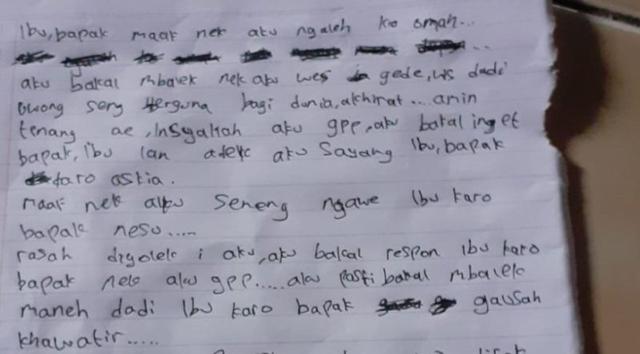 Ibu, bapak maaf nek aku ngaleh ko omah...
aku bakal mbalek nek aku wes gede, wes dadi
owong seng berguna bagi dunia, akhirat... amin
tenang ae, Insyallah aku gpp, aku bakal inget
bapak, ibu lan adekc aku Sayang Ibu, bapak
karo astia.
maaf nek aku Seneng ngawe Ibu karo
bapak nesu.....
rasah digoleki aku, aku bakal respon Ibu karo
bapak nek aku gpp..... aku pasti bakal mbalek
maneh dadi Ibu karo bapak gausah
khawatir.....